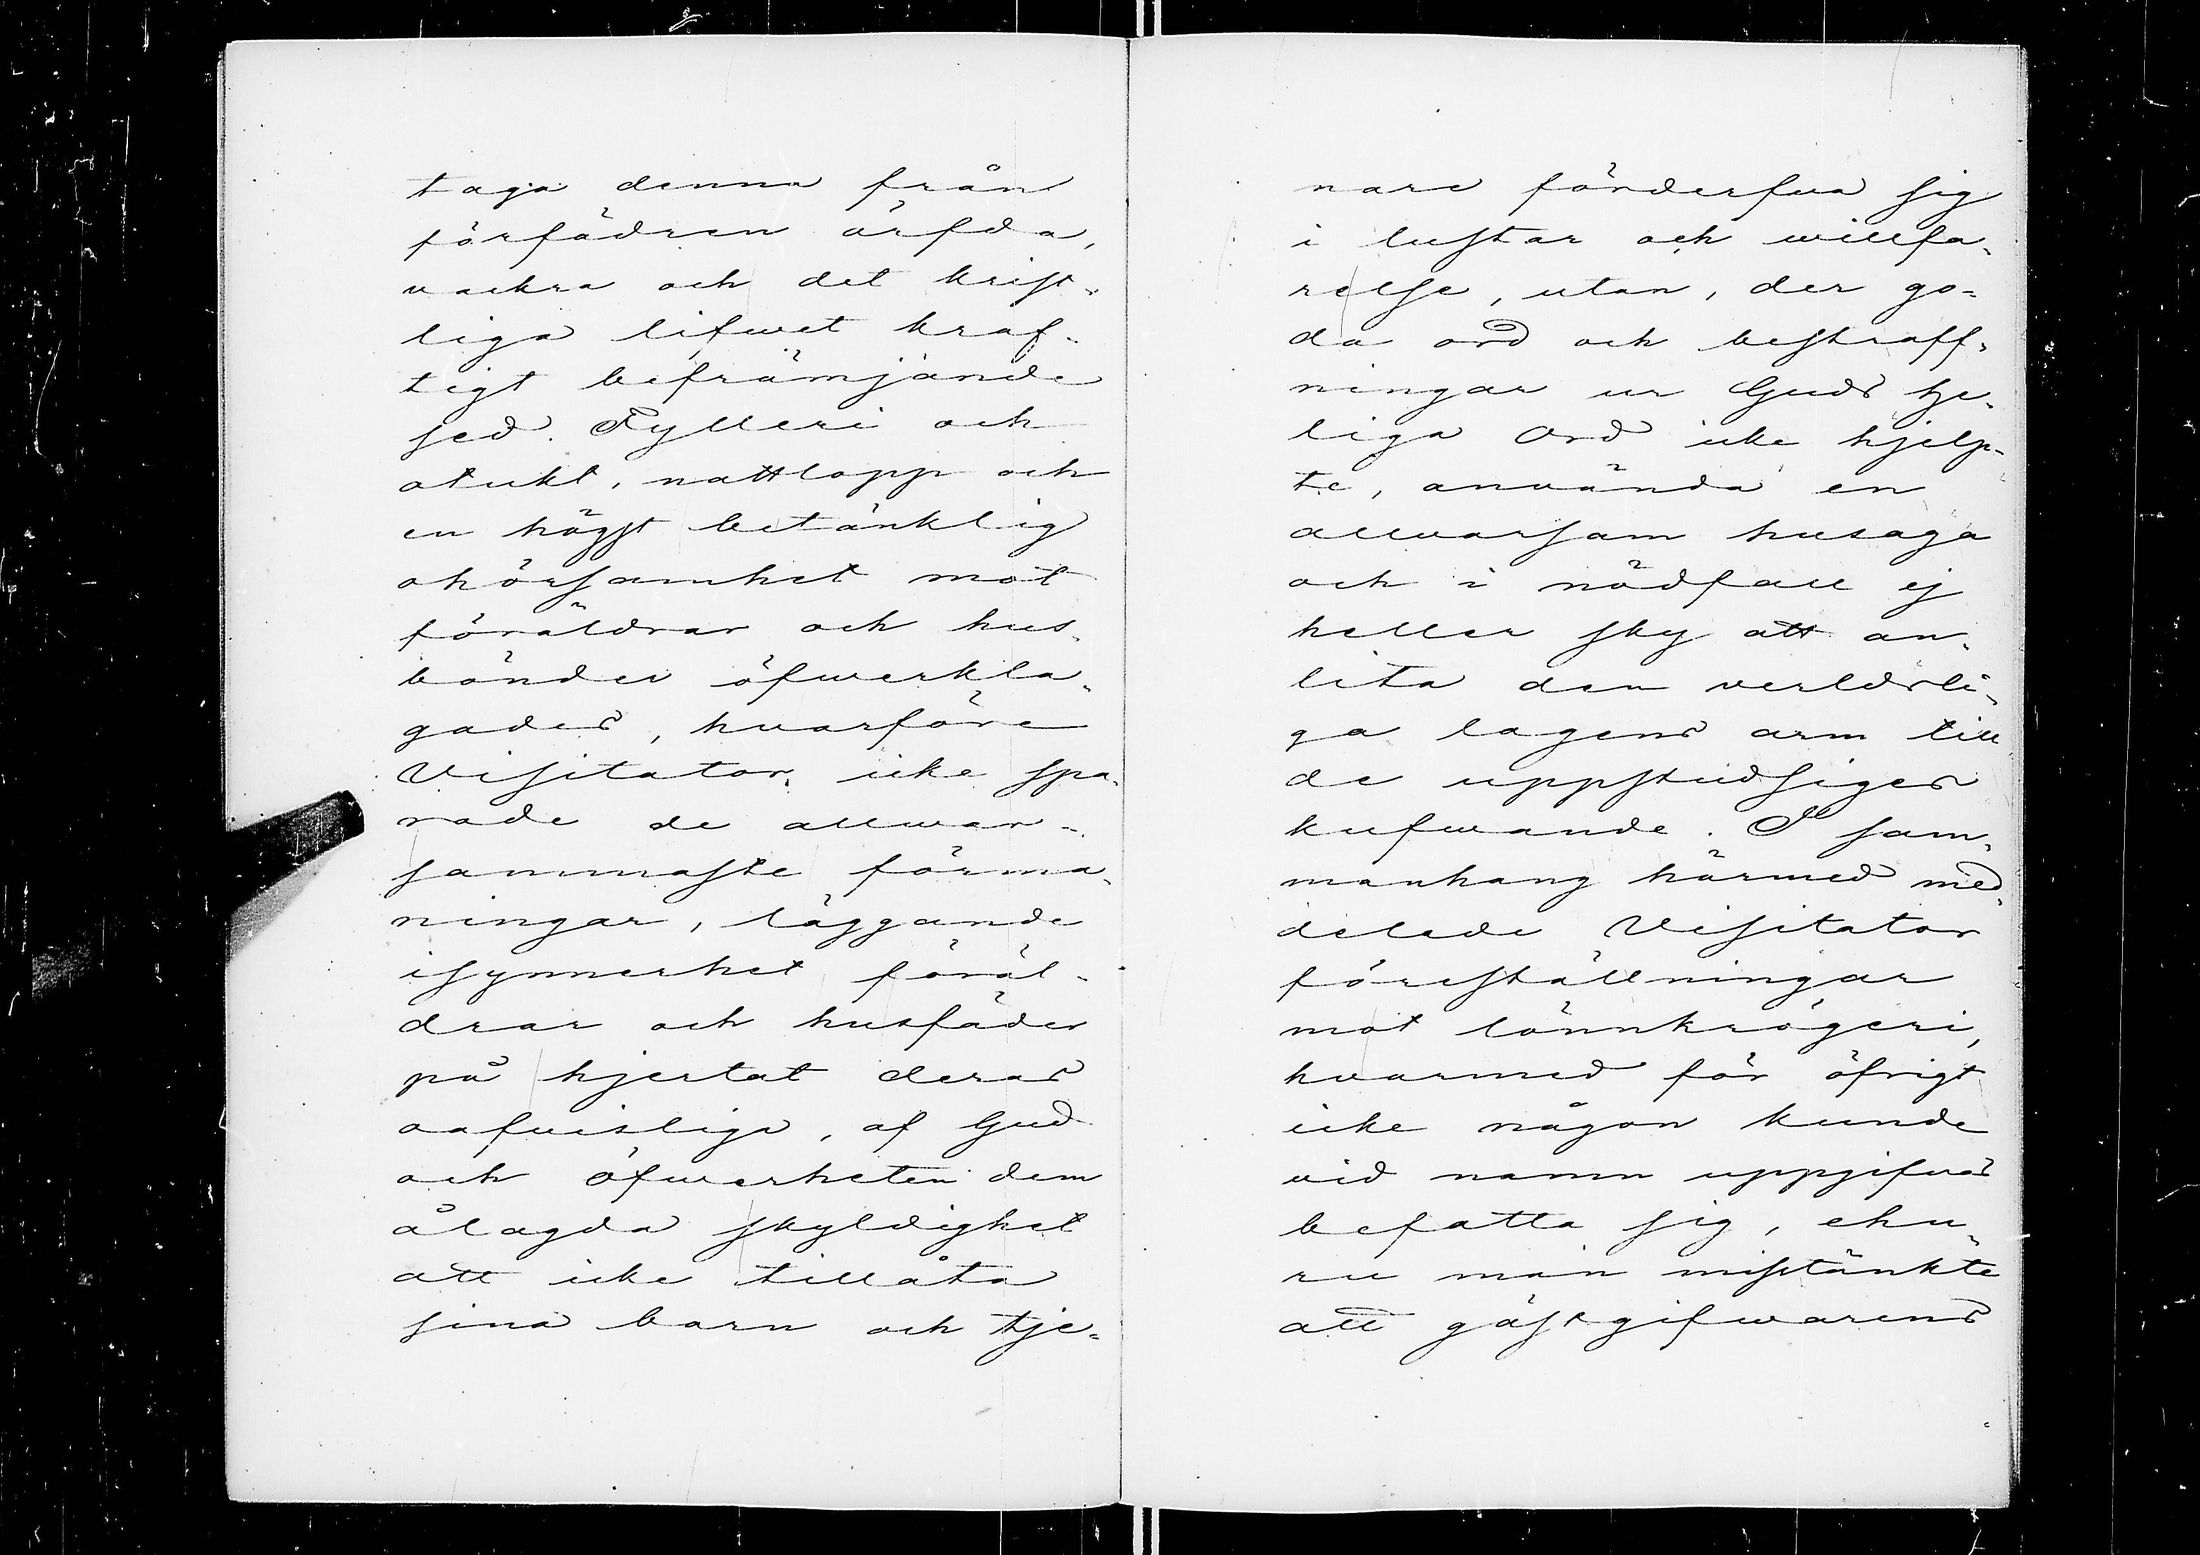 taga denna från
förfädren ärfda,
vackra och det krist-
liga lifwet kraf-
tigt befrämjande
sed. Fylleri och
otukt, nattlopp och
en högst betänklig
ohörsamhet mot
föräldrar och hus-
bönder öfwerkla-
gades, hvarföre
Visitator icke spa-
rade de allwar-
sammaste förma-
ningar, läggande
isynnerhet föräl-
drar och husfäder
på hjertat deras
oafvisliga, af Gud
och öfwerheten dem
ålagda skyldighet
att icke tillåta
sina barn och tje-
nare förderfva sig
i lustar och willfa-
relse, utan, der go-
da ord och bestraff-
ningar ur Guds he-
liga Ord icke hjelp-
te, använda en
allvarsam husaga
och i nödfall ej
heller sky att an-
lita den verldsli-
ga lagens arm till
de uppstudsiges
kufwande. I sam-
manhang härmed med-
delade Visitator
föreställningar
mot lönnkrögeri,
hvarmed för öfrigt
icke någon kunde
vid namn uppgifvas
befatta sig, ehu-
ru man misstänkte
att gästgifwarens